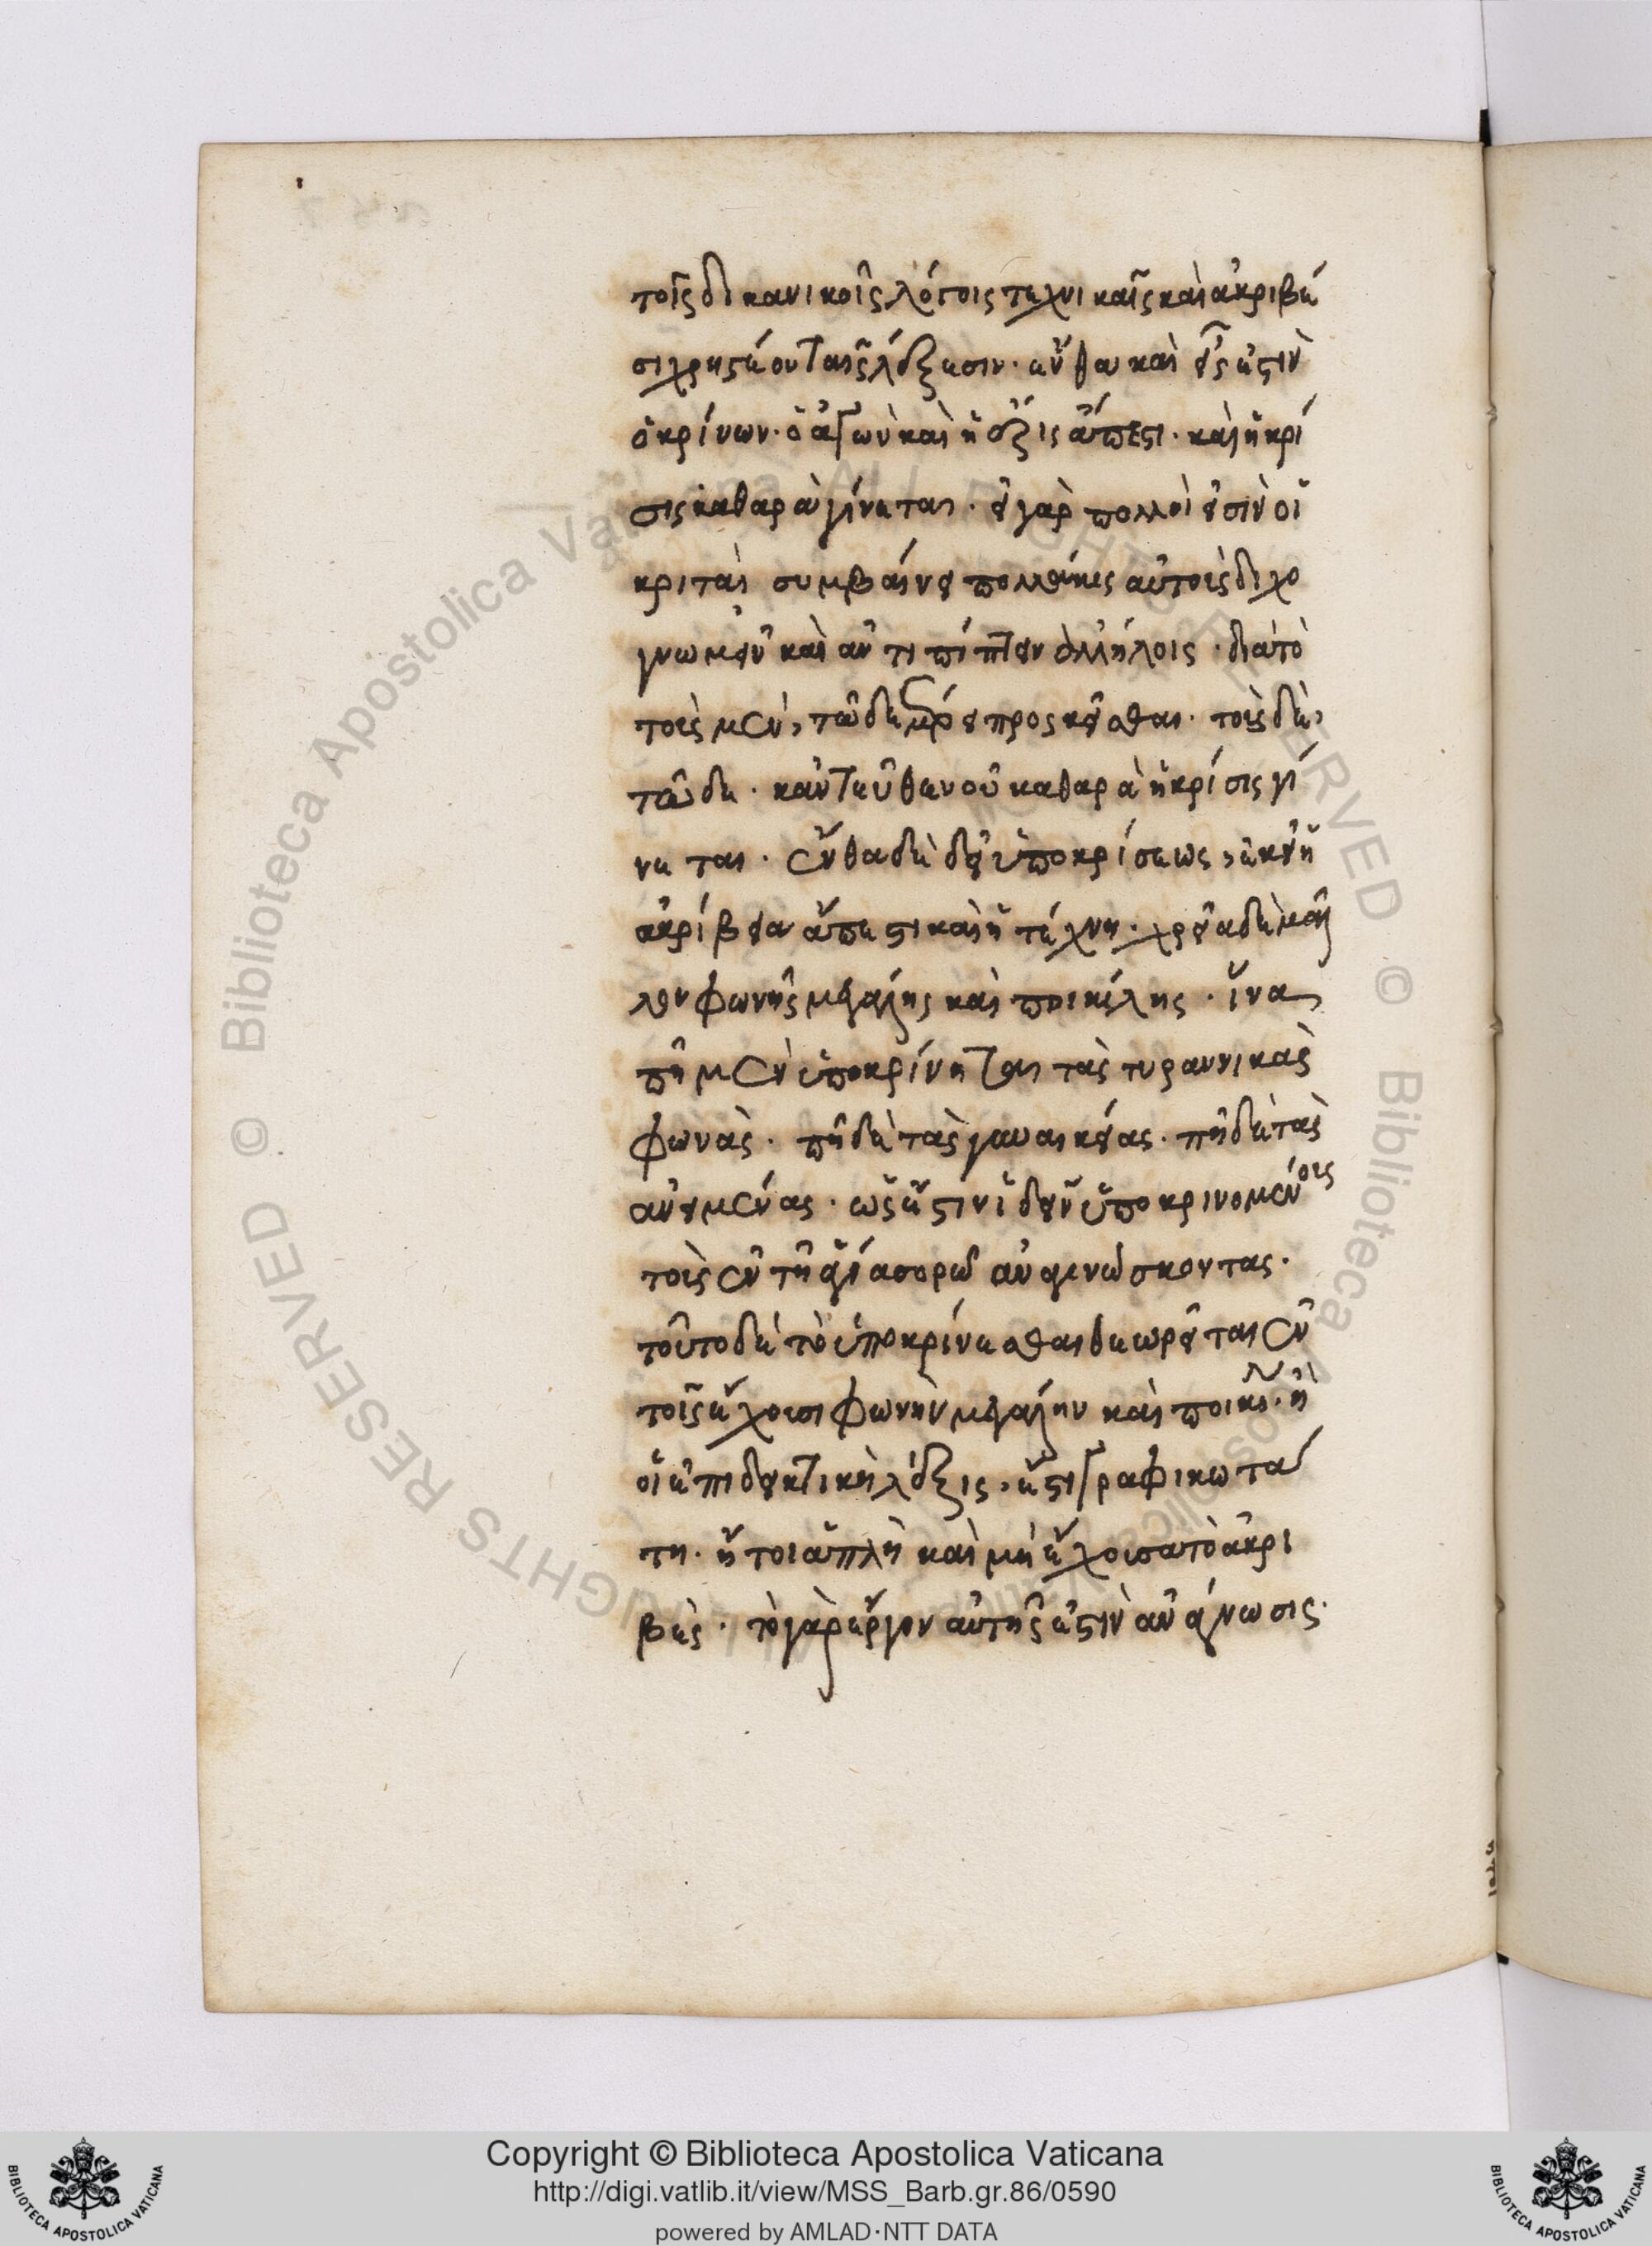 τοῖς δικανικοῖς λόγοις τεχνικαῖς καὶ ἀκριβέ
σι χρηστέον ταῖς λέξεσιν· ἔνθα καὶ εἷς ἐστὶν
ὁ κρίνων· ὁ ἀγὼν καὶ ἡ ἕξις ἄπεστι· καὶ ἡ κρί
σις καθαρὰ γίνεται· εἰ γὰρ πολλοὶ εἰσὶν οἱ
κριταὶ συμβαίνει πολλάκις αὐτοὺς διχο
γνωμεῖν καὶ ἀντιπίπτειν ἀλλήλοις· διὰ τὸ
τοὺς μὲν, τῶδε τῷ μέρει προσκεῖσθαι· τοὺς δὲ,
τῶδε· κἀντεῦθεν οὐ καθαρὰ ἡ κρίσις γί
νεται· ἔνθα δὲ δεῖ ὑποκρίσεως, ἐκεῖ ἡ
ἀκρίβεια ἄπεστι καὶ ἡ τέχνη· χρεία δὲ μᾶλ
λον φωνῆς μεγάλης καὶ ποικίλης· ἵνα
πῆ μὲν ὑποκρίνηται τὰς τυραννικὰς
φωνὰς· πῆ δὲ τὰς γυναικείας· πῆ δὲ τὰς
ἀνειμένας· ὡς ἔστιν ἰδεῖν ὑποκρινομένους
τοὺς ἐν τῆ ἁγία σορῶ ἀναγινώσκοντας·
τοῦτο δὲ τὸ ὑποκρίνεσθαι θεωρεῖται ἐν
τοῖς ἔχουσι φωνὴν μεγάλην καὶ ποικίλην· ἡ
οἱ ἐπιδεικτικὴ λέξις, ἔστι γραφικωτά
τη· ἤτοι ἁπλῆ καὶ μὴ ἔχουσα τὸ ἀκρι
βὲς· τὸ γὰρ ἔργον αὐτῆς ἐστὶν ἀνάγνωσις·
Copyright © Biblioteca Apostolica Vaticana
http://digi.vatlib.it/view/MSS_Barb.gr.86/0590
powered by AMLAD·NTT DATA